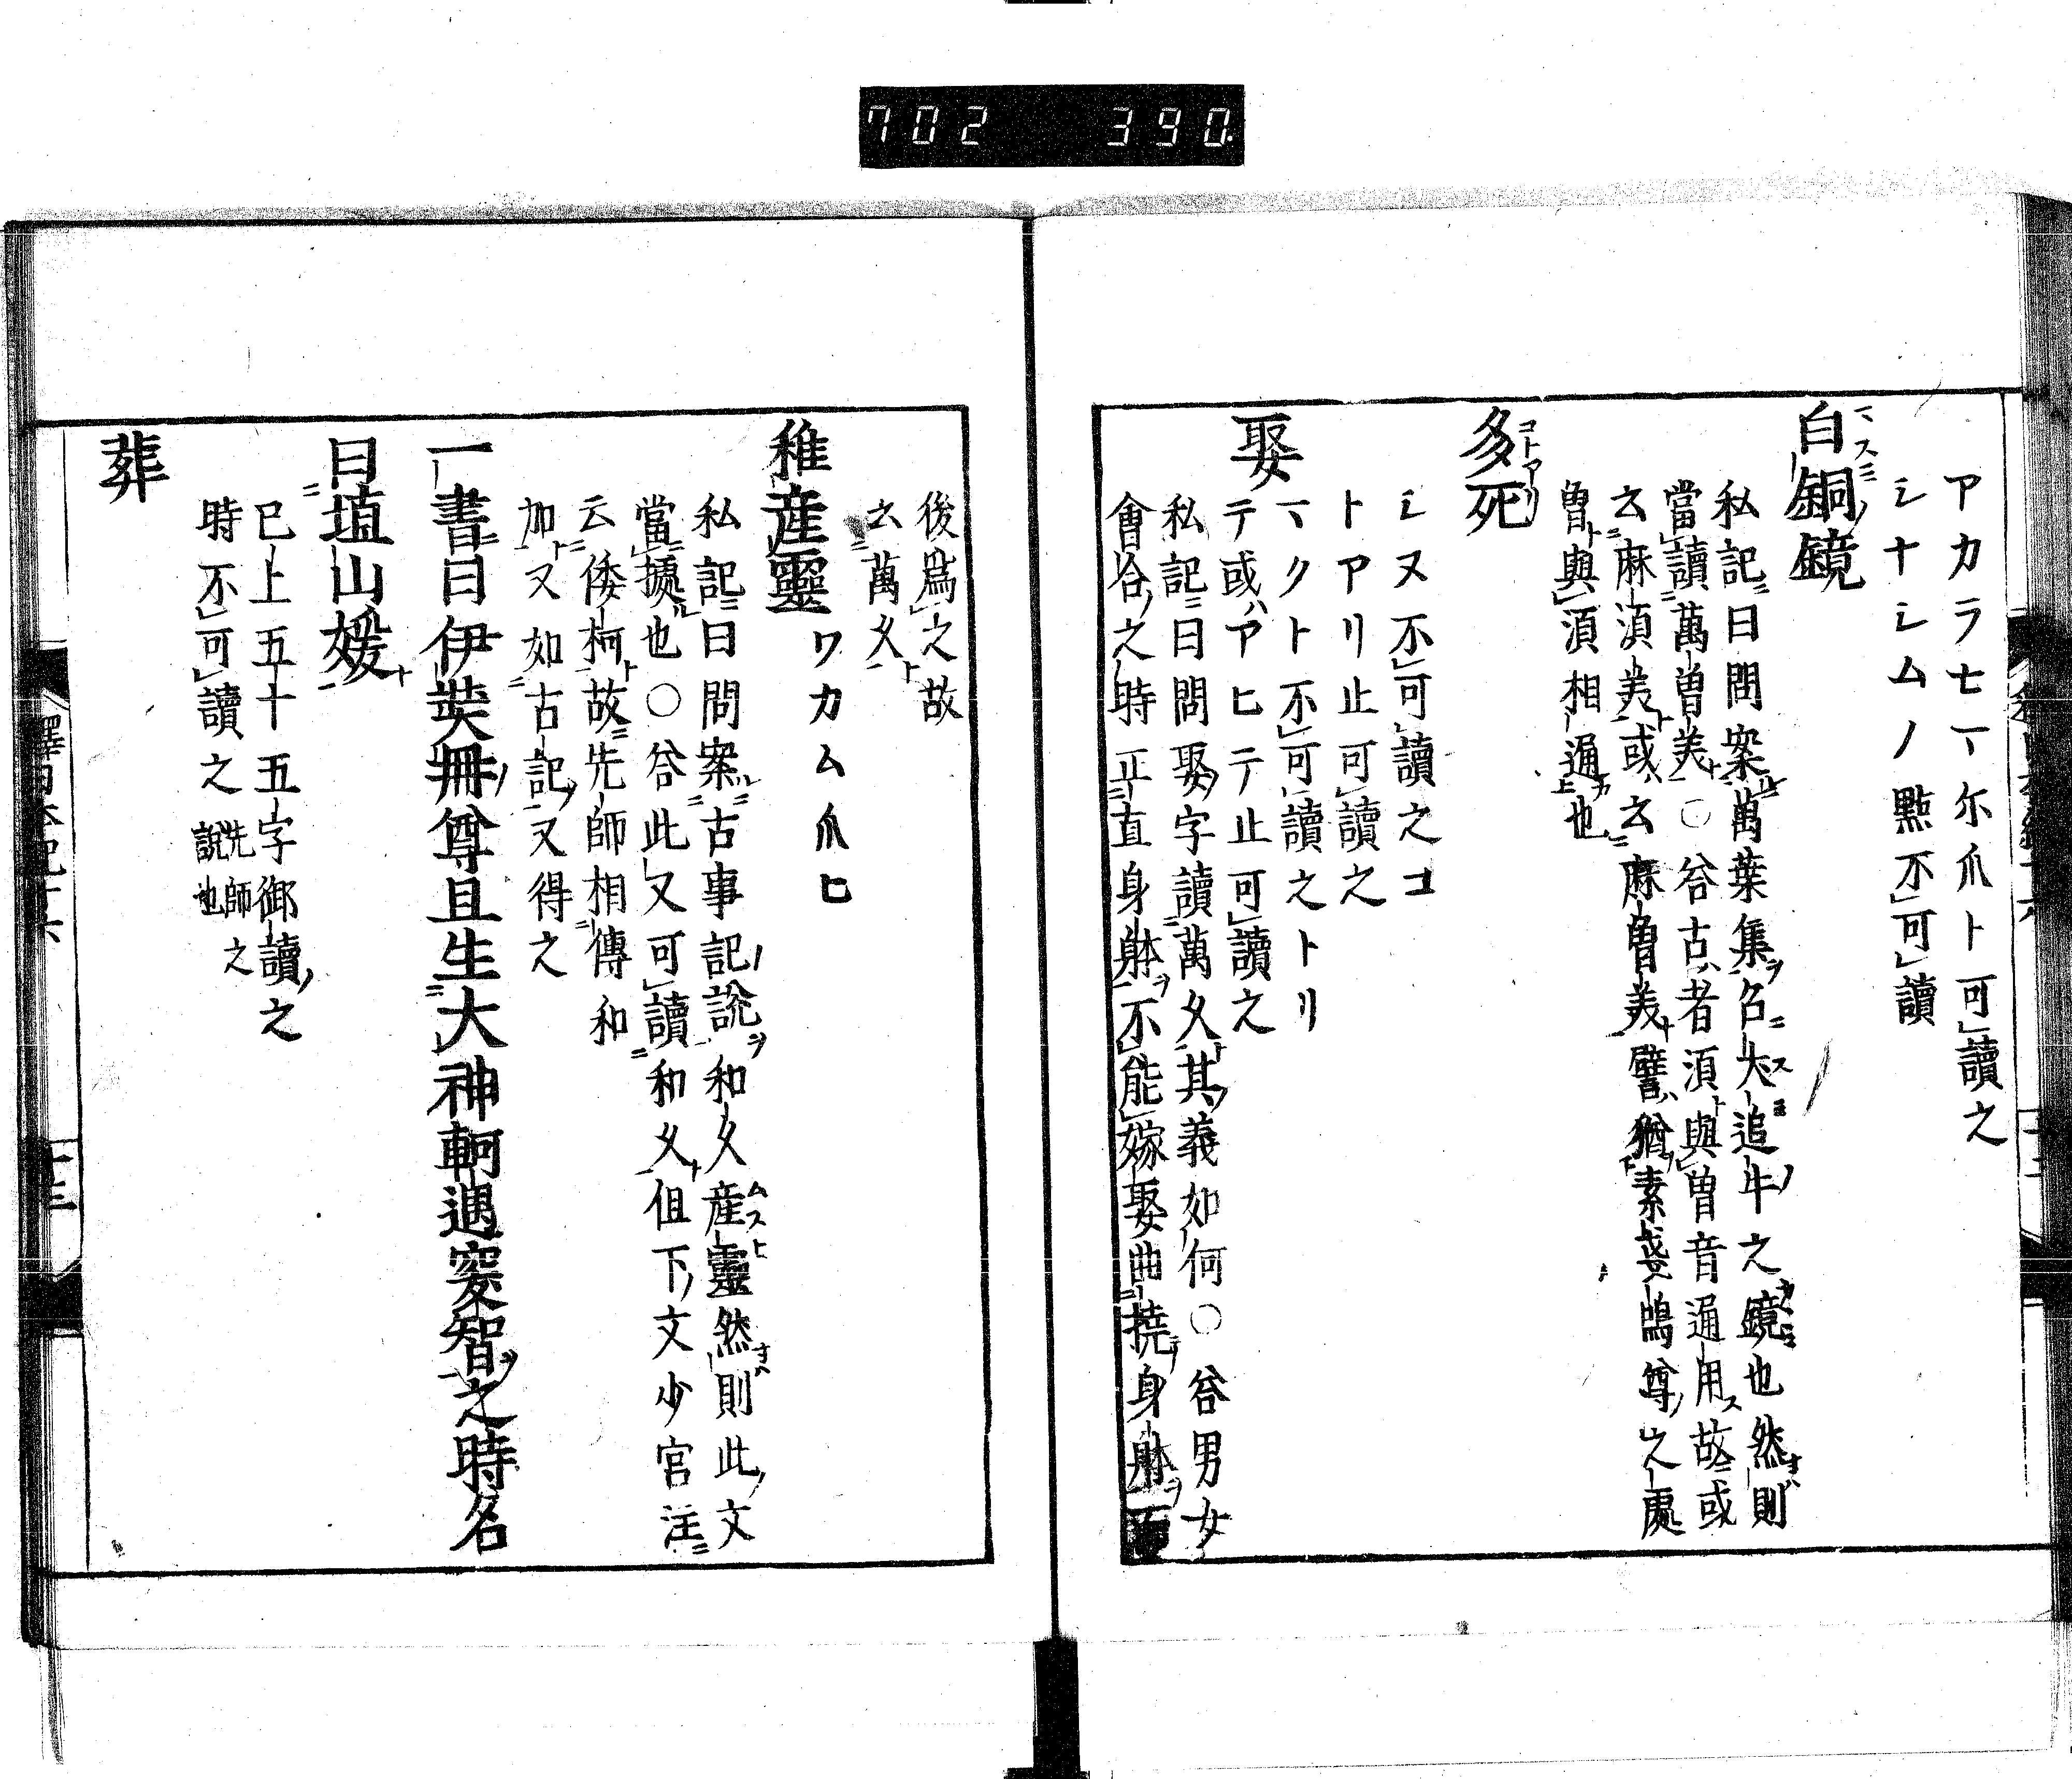 702 390
アカラセマ尓爪ト可讀之
シナシムノ點不可讀
白銅鏡
私記曰問案萬葉集名犬追牛之鏡也然則
當讀萬曽美〇答古者湏與曽音通用故或
云麻湏美或云麻曽美譬猶素戔嗚尊之處
曽與湏相通也
多死
シヌ不可讀之コ
トアリ止可讀之
娶
マクト不可讀之トリ
テ或アヒテ止可讀之
私記曰問娶字讀萬久其義如何〇答男女
會合之時正直身躰不能嫁娶曲撓身躰而
後爲之故
云萬久
稚産靈 ワカム爪ヒ
私記曰問案古事記說和久産靈然則此文
當據也〇答此又可讀和久但下文少宮注
云倭柯故先師相傳和
加又如古記又得之
一書曰伊奘冊尊且生大神軻遇突智之時名
曰埴山媛
已上五十五字御讀之
時不可讀之 先師之說也
葬
十三